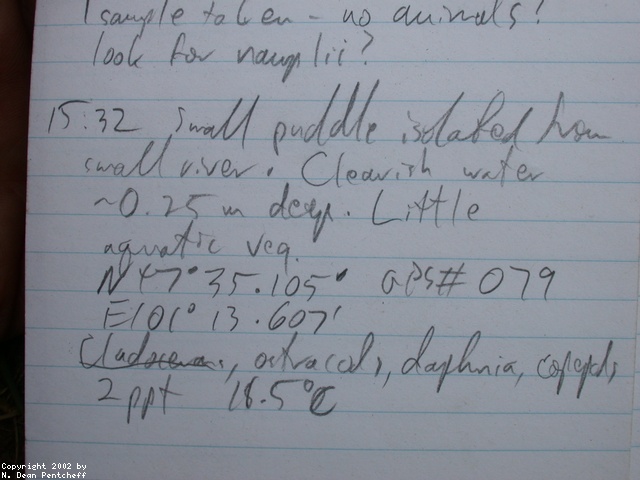 1 sample taken - no animals!
look for nauplii?
15:32 small puddle isolated from
small river. Clearish water
~0.25 m deep. Little
aquatic veg.
N 47° 35.105' GPS# 079
E101° 13.607'
Cladoceran, ostracods, daphnia, copepods
2ppt 18.5°C
Copyright 2002 by
N. Dean Pentcheff